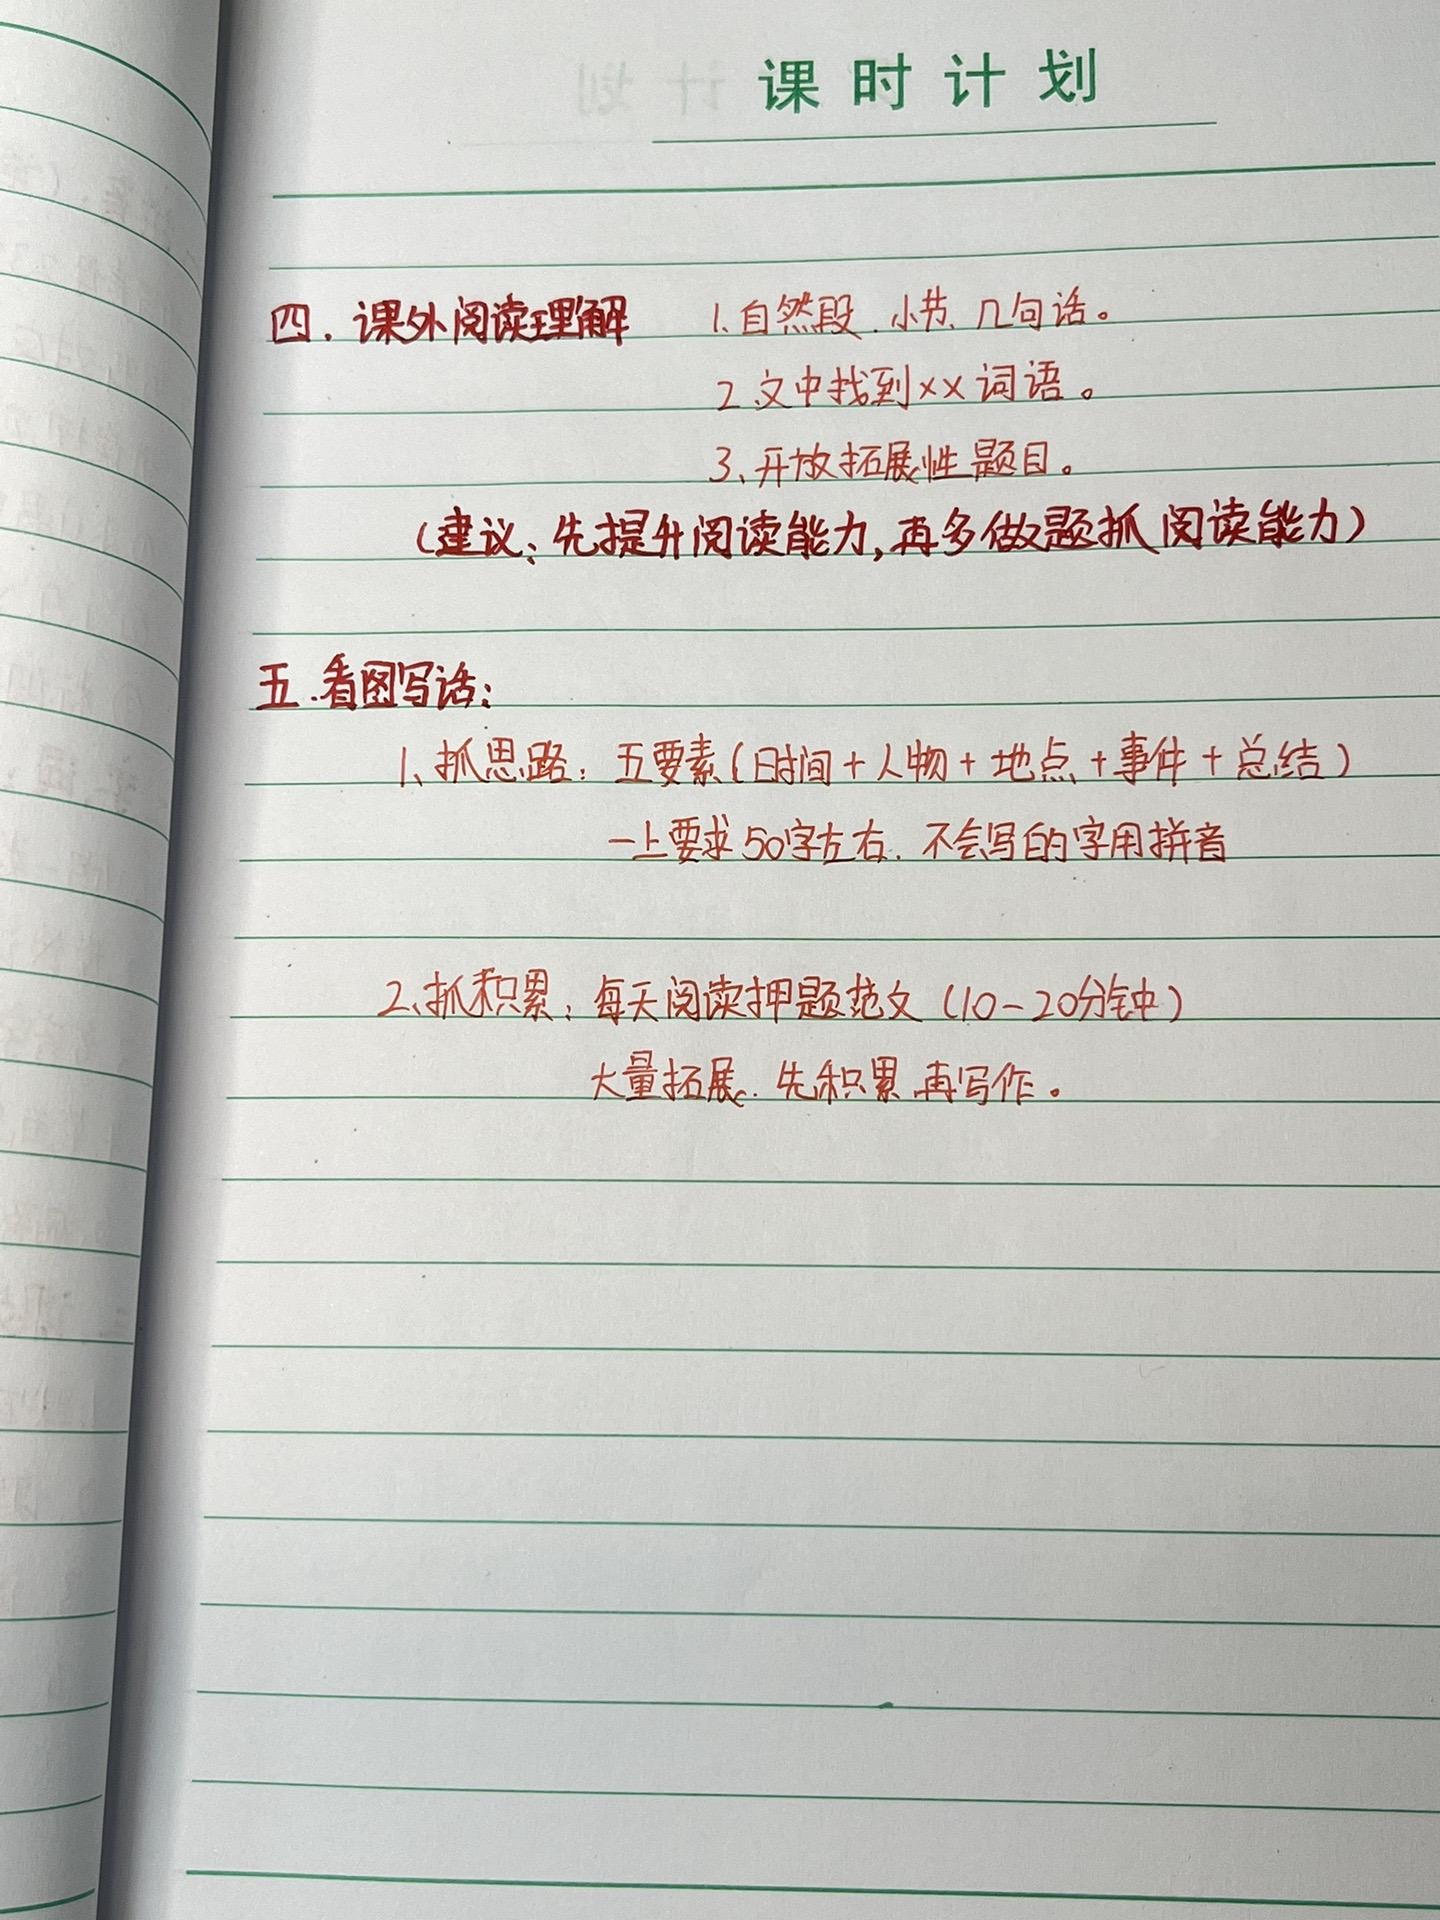 课时计划
四．课外阅读理解 1.自然段、小节、几句话。
2.文中找到××词语。
3、开放拓展性题目。
（建议：先提升阅读能力，再多做题抓阅读能力）
五．看图写话：
1、抓思路：五要素（时间+人物+地点+事件+总结）
一上要求50字左右．不会写的字用拼音
2、抓积累：每天阅读押题范文（10-20分钟）
大量拓展．先积累再写作。